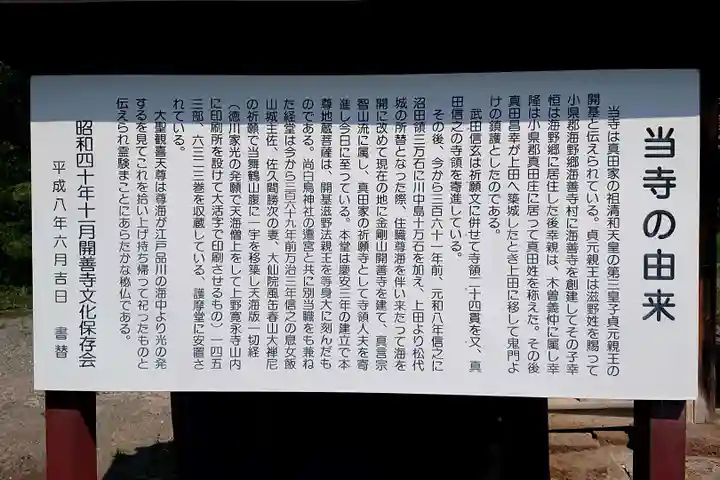 当寺の由来
当寺は真田家の祖清和天皇の第三皇子貞元親王の
開基と伝えられている。貞元親王は滋野姓を賜って
小県郡海野郷海善寺村に海善寺を創建してその子幸
恒は海野郷に居住した後幸親は、木曽義仲に属し幸
隆は小県郡真田庄に居って真田姓を称えた。その後
真田昌幸が上田へ築城したとき上田に移して鬼門よ
けの鎮護としたのである。
武田信玄は祈願文に併せて寺領二十四貫を又、真
田信之の寺領を寄進している。
その後、今から三百六十一年前、元和八年信之に
沼田領三万石に川中島十万石を加え、上田より松代
城の所替となった際、住職尊海を伴い来たって海を
開に改めて現在の地に金剛山開善寺を建て、真言宗
智山流に属し、真田家の祈願寺として寺領人夫を寄
進し今日に至っている。本堂は慶安三年の建立で本
尊地蔵菩薩は、開基滋野法親王を等身大に刻んだも
のである。尚白鳥神社の遷宮と共に別当職をも兼ね
た経堂は今から三百六十九年前万治三年信之の息女飯
山城主佐、佐久間勝次の妻、大仙院風缶春山大禅尼
の祈願で当舞鶴山腹に一宇を移築し天海版一切経
（徳川家光の発願で天海僧上をして上野寛永寺山内
に印刷所を設けて大活字で印刷させるもの）一四五
三部、六三二三巻を収蔵している、護摩堂に安置さ
れている。
大聖観喜天尊は尊海が江戸品川の海中より光の発
するを見てこれを拾い上げ持ち帰って祀ったものと
伝えられ霊験まことにあらたかな秘仏である。
昭和四十年十一月開善寺文化保存会
平成八年六月吉日 書替